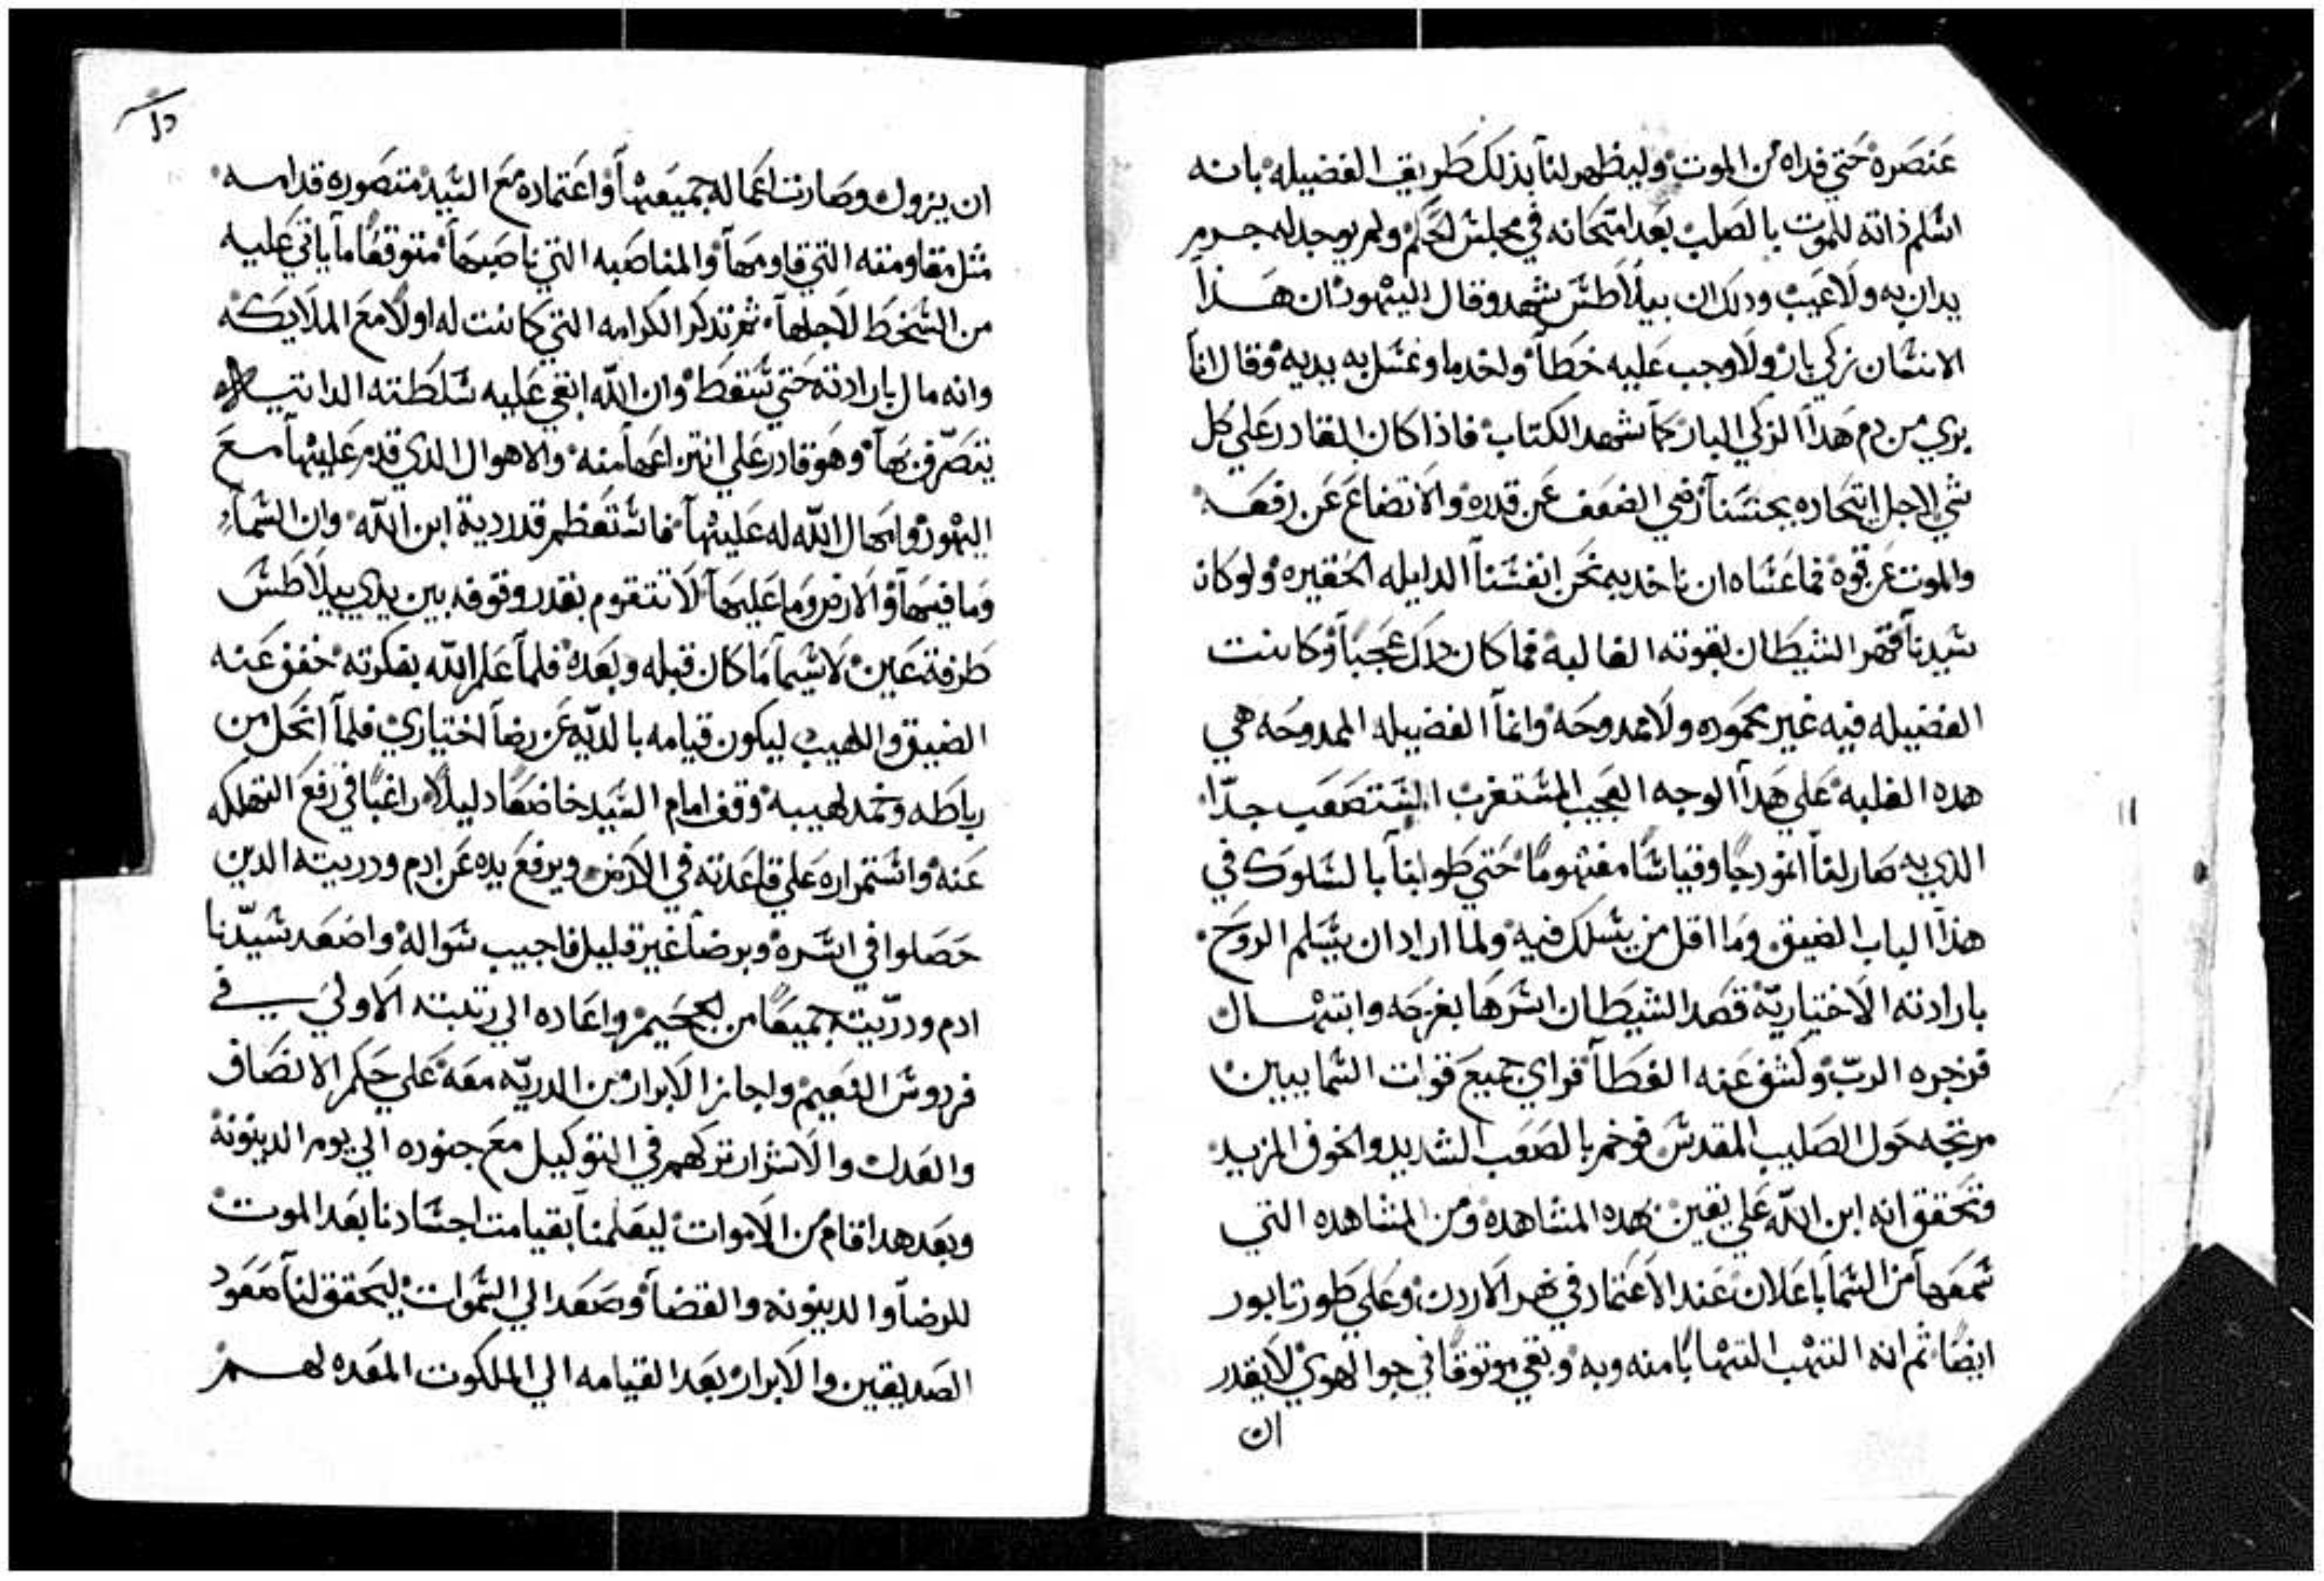 عنصره حتي فداه من الموت وليظهر لنا بذلك طريق الفضيله بانه
اسلم ذاته للموت بالصلب بعد امتحانه في مجلس الحكم ولم يوجد له جرم
يدان به ولا عيب ودلك ان بيلاطس شهد وقال لليهود ان هذا
الانسان زكي بار ولا وجب عليه خطا واخد ما وغسل به يديه وقال انا
بري من دم هدا الزكي البار كما شهد الكتاب فاذا كان القادر علي كل
شي لاجل اتحاده بجنسنا رضي الضعف عن قدره والاتضاع عن رفعه
والموت عن قوه فما عساه ان ناخد به نحن انفسنا الدليله الحقيره ولو كان
سيدنا قهر الشيطان بقوته الغالبه فما كان دلك عجبا وكانت
الفضيله فيه غير محموده ولا ممدوحه وانما الفضيله الممدوحه هي
هده الغلبه علي هدا الوجه العجيب المستغرب المستصعب جدا
الدي به صار لنا انمودجا وقياسا مفهوما حتي طولبنا بالسلوك في
هذا الباب الضيق وما اقل من يسلك فيه ولما اراد ان يسلم الروح
بارادته الاختياريه قصد الشيطان اسرها بفرحه وابتهال
فزجره الرب وكشف عنه الغطا فراي جميع قوات السماييين
مرتجه حول الصليب المقدس فوخم بالصعب الشديد والخوف المزيد
وتحقق انه ابن الله علي يقين بهده المشاهده ومن المشاهده التي
سمعها من السما باعلان عند الاعتماد في نهر الاردن وعلي طور تابور
ايضا ثم انه التهب التهابا منه وبه وبقي موتوقا في جو الهوي لا يقدر
ان
ان يزول وصارت اعماله جميعها واعتماده مع السيد متصوره قدامه
مثل مقاومته التي قاومها والمناصبه التي ناصبها متوقعا ما ياتي عليه
من السخط لاجلها ثم تدكر الكرامه التي كانت له اولا مع الملايكه
وانه مال بارادته حتي سقط وان الله ابقي عليه سلطته الداتيه
يتصرف بها وهو قادر علي انتزاعها منه والاهوال الدي قدم عليها مع
اليهود وامهال الله له عليها فاستعظم قدر دية ابن الله وان السما
وما فيها والارض وما عليها لا تتقوم بقدر وقوفه بين يدي بيلاطس
طرفة عين لاسيما ما كان قبله وبعده فلما علم الله بفكرته خفف عنه
الضيق واللهيب ليكون قيامه بالديه عن رضا اختياري فلما انحل من
رباطه وخمد لهيبه وقف امام السيد خاضعا دليلا راغبا في رفع التهلكه
عنه واستمراره علي قاعدته في الارض ويرفع يده عن ادم ودريته الدين
حصلوا في اسره وبرضا غير قليل فاجيب سواله واصعد سيدنا
ادم ودريته جميعا من الجحيم واعاده الي رتبته الاولي في
فردوس النعيم واجاز الابرار من الدريه معه علي حكم الانصاف
والعدل والاشرار تركهم في التوكيل مع جنوده الي يوم الدينونه
وبعد هدا قام من الاموات ليعلمنا بقيامت اجسادنا بعد الموت
للرضا والدينونه والقضا وصعد الي السموات ليحقق لنا صعود
الصديقين والابرار بعد القيامه الي الملكوت المعده لهم